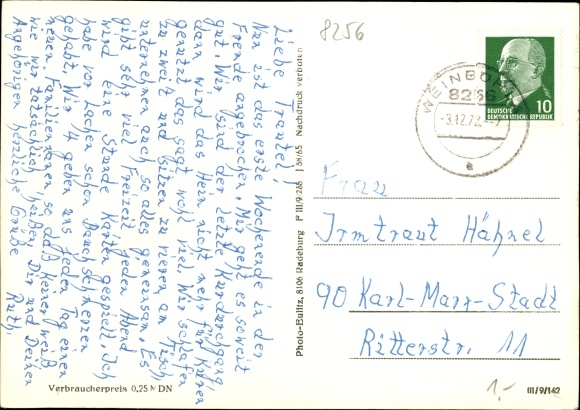 8256
Liebe Trautel!
Nun ist das erste Wochenende in der
Fremde angebrochen. Mir geht es soweit
gut. Wir sind der letzte Kurdurchgang,
dann wird das Heim nicht mehr für Kuren
genutzt, das sagt wohl viel. Wir schlafen
zu zweit und sitzen zu vieren am Tisch,
unternehmen auch so alles gemeinsam. Es
gibt sehr viel Freizeit. Jeden Abend
wird eine Stunde Karten gespielt. Ich
habe vor Lachen schon Bauchschmerzen
gehabt. Wir 4 geben uns jeden Tag einen
neuen Familiennamen, so daß keiner weiß
wie wir tatsächlich heißen. Dir und Deinen
Angehörigen herzliche Grüße Ruth.
Verbraucherpreis 0,25 M DN
Photo-Ballitz, 8106 Radeburg P III/9/286 J 68/65 Nachdruck verboten
WEINBÖHLA
8256
-3.12.72.
a
DEUTSCHE
DEMOKRATISCHE REPUBLIK
10
Frau
Irmtraut Hähnel
90 Karl-Marx-Stadt
Ritterstr. 11
1,-
III/9/142